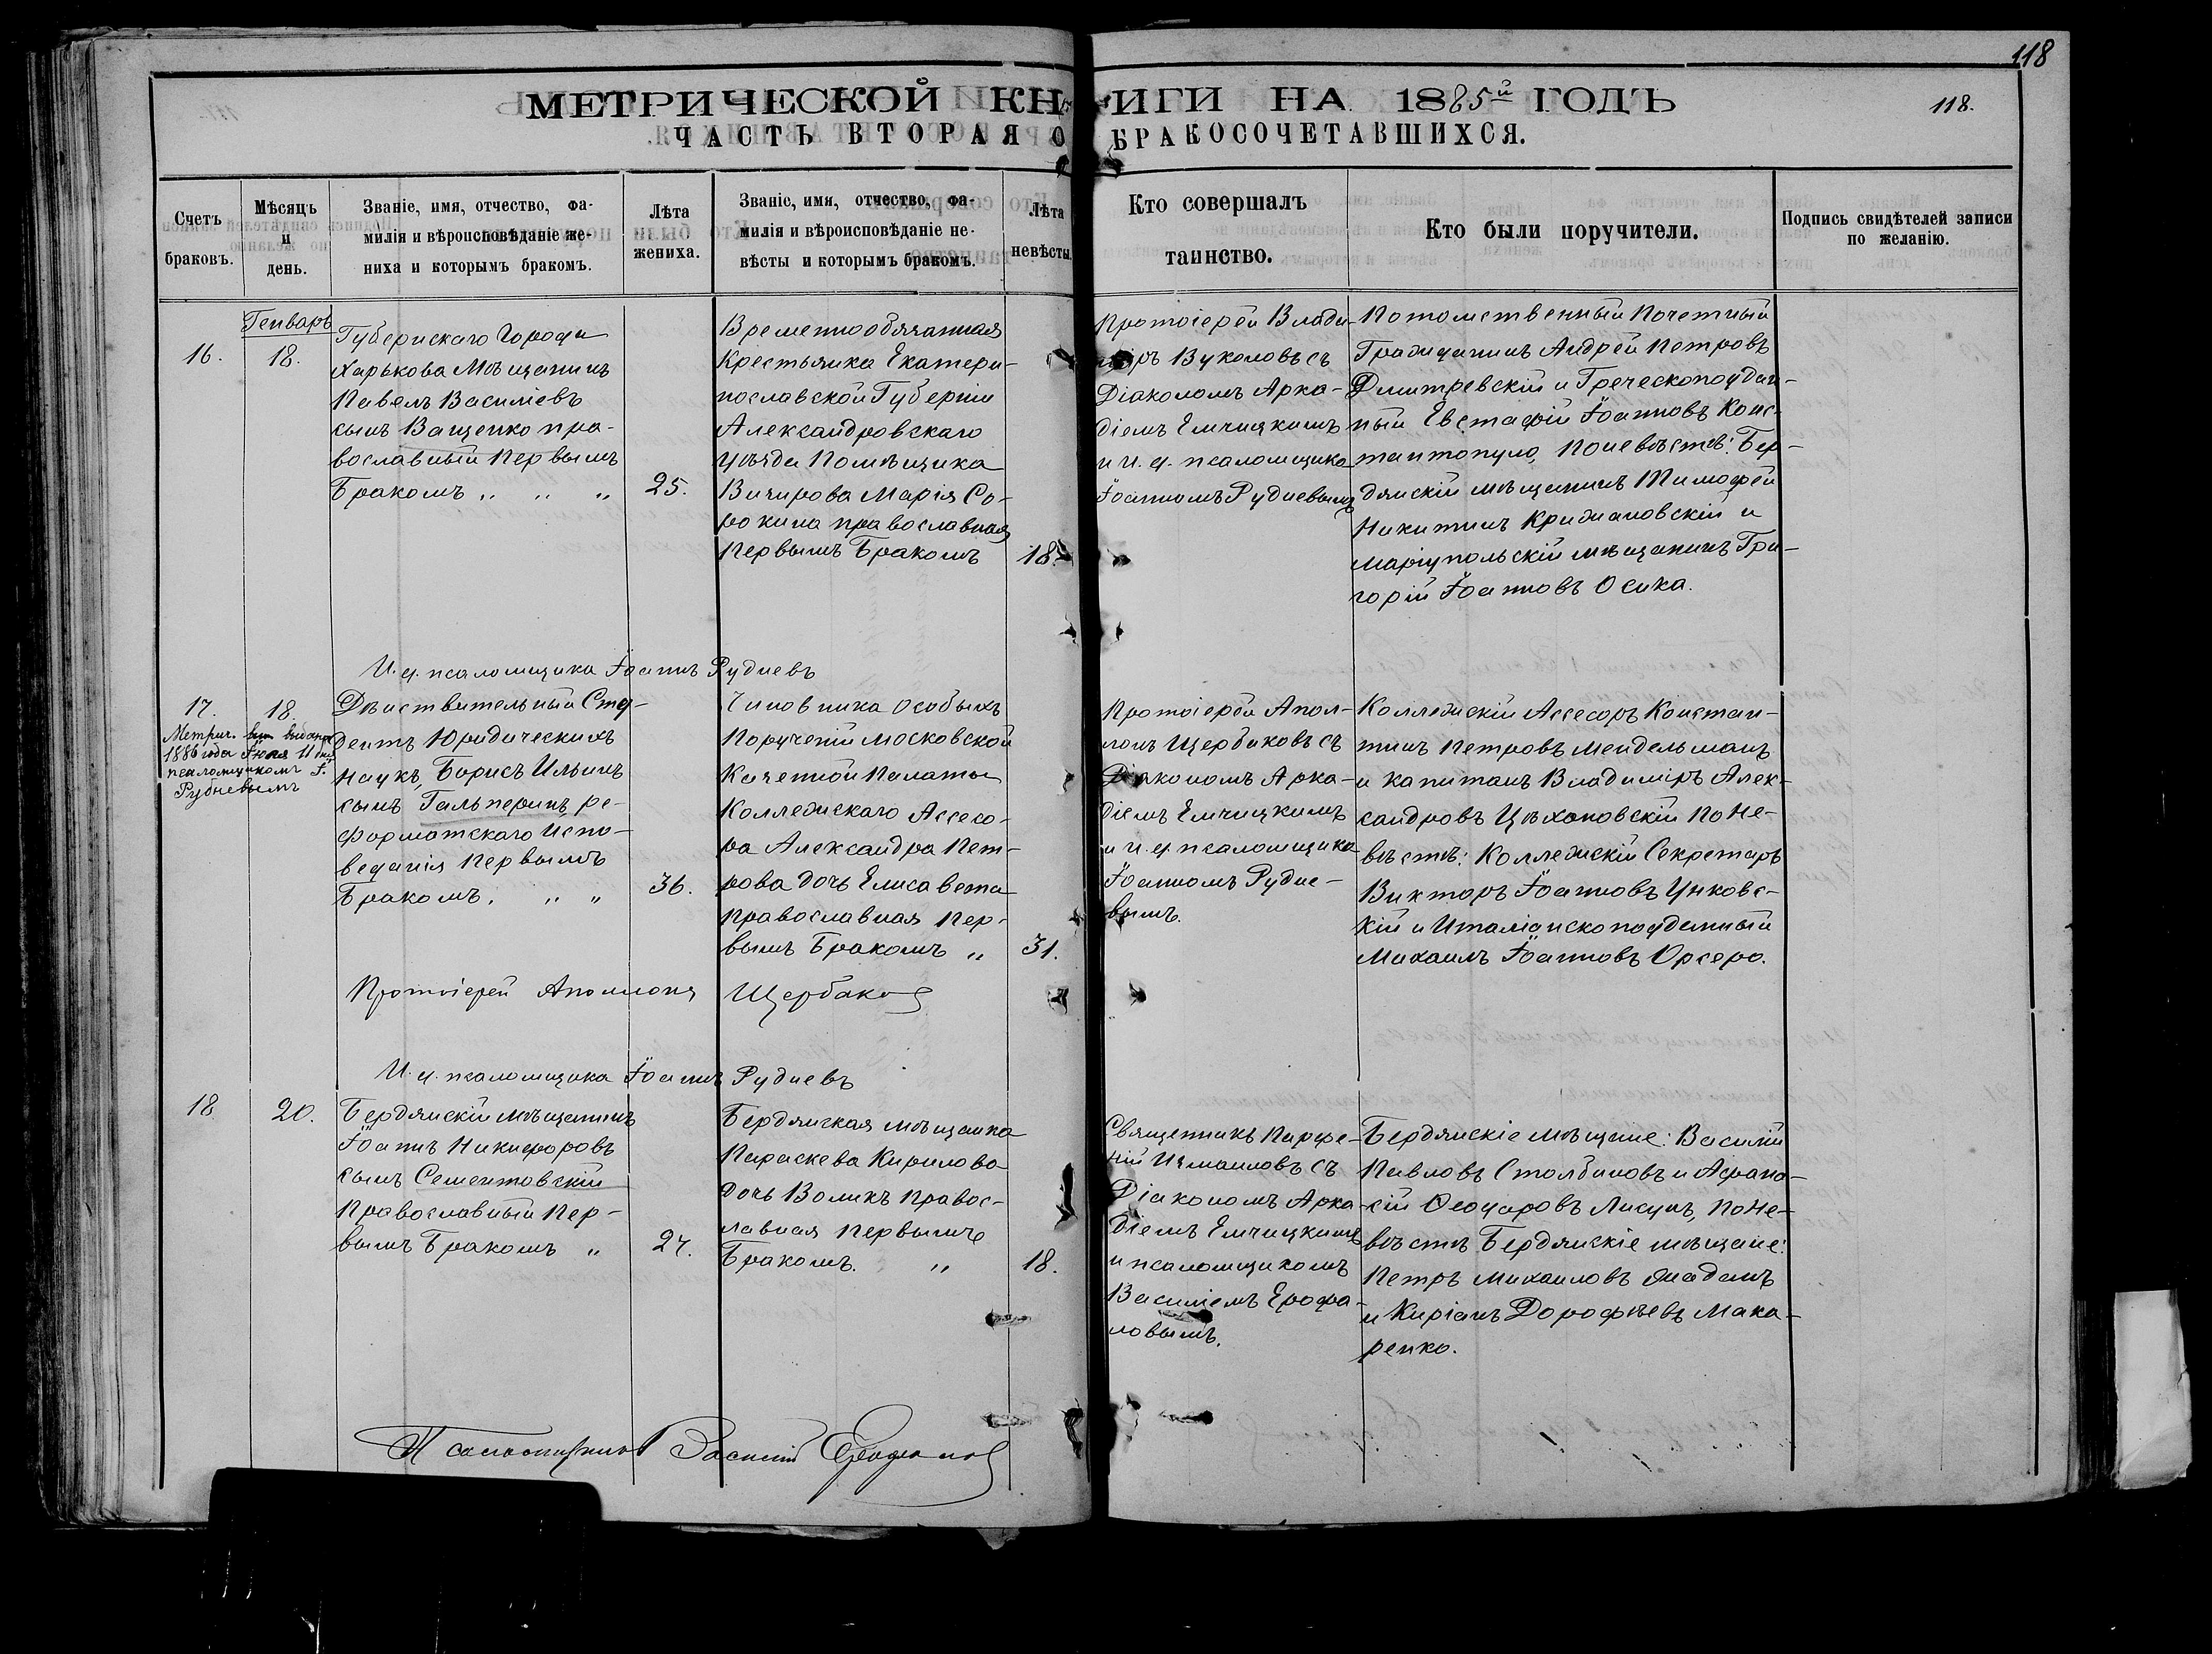 118
МЕТРИЧЕСКОЙ КНИГИ НА 1885й ГОДЪ
118.
ЧАСТЬ ВТОРАЯ О БРАКОСОЧЕТАВШИХСЯ.
Счетъ
браковъ.
Мѣсяцъ
и
день.
Званіе, имя, отчество, фа-
милія и вѣроисповѣданіе же-
ниха и которымъ бракомъ.
Лѣта
жениха.
Званіе, имя, отчество, фа-
милія и вѣроисповѣданіе не-
вѣсты и которымъ бракомъ.
Лѣта
невѣсты.
Кто совершалъ
таинство.
Кто были поручители.
Подпись свидѣтелей записи
по желанію.
Генварь
16.
18.
Губернскаго Города
Харькова Мѣщанинъ
Павелъ Василіевъ
сынъ Ващенко пра-
вославный первымъ
Бракомъ „ „ „
25.
Временнообязанная
Крестьянка Екатери-
нославской Губерніи
Александровскаго
уѣзда Помѣщика
Марія Со-
рокина православная
первымъ Бракомъ
18.
Протоіерей Влади-
міръ Вуколовъ съ
Діакономъ Арка-
діемъ Емчицкимъ
и и. д. псаломщика
Іоанномъ Рудневымъ
Потомственный Почетный
Гражданинъ Андрей Петровъ
Дмитревскій и Греческоподдан-
ный Евстафій Іоанновъ Конс-
тантопуло, По невѣстѣ: Бер-
дянскій мѣщанинъ Тимофей
Никитинъ Крижановскій и
Маріупольскій мѣщанинъ Гри-
горій Іоанновъ Осика.
И. д. псаломщика Іоаннъ Рудневъ
17.
18.
Метрич. выдана
1886 года Іюля И д
псаломщикомъ І.
Рудневымъ
Дѣйствительный Сту-
дентъ Юридическихъ
Наукъ, Борисъ Ильинъ
сынъ Гальперинъ ре-
форматскаго Испо-
веданія первымъ
Бракомъ. „ „
36.
Чиновника Особыхъ
Порученій Московской
Казенной Палаты
Коллежскаго Ассесо-
ра Александра Пет-
рова дочь Елисавета
православная пер-
вымъ Бракомъ „
31.
Протоіерей Апол-
лонъ Щербаковъ съ
Діакономъ Арка-
діемъ Емчицкимъ
и и. д. псаломщика
Іоанномъ Рудне-
вымъ.
Коллежскій Ассесоръ Констан-
тинъ Петровъ Мендельманъ
и капитанъ Владиміръ Алек-
сандровъ Цѣхановскій По Не-
вѣстѣ: Коллежскій Секретарь
Викторъ Іоанновъ Унковс-
кій и Италіанскоподданный
Михаилъ Іоанновъ Орсеро.
Протоіерей Аполлонъ Щербаковъ
И. д. псаломщика Іоаннъ Рудневъ
18
20.
Бердянскій мѣщанинъ
Іоаннъ Никифоровъ
сынъ Сементовскій
Православный Пер-
вымъ Бракомъ „
24.
Бердянская мѣщанка
Параскева Кирилова
дочь Воликъ Правос-
лавная первымъ
Бракомъ. „
18.
Священникъ Парфе-
ній Измаиловъ съ
Діакономъ Арка-
діемъ Емчицкимъ
и псаломщикомъ
Василіемъ Ерофа-
ловымъ.
Бердянскіе мѣщане: Василій
Павловъ Столбиновъ и Афана-
сій Феодоровъ Лисунъ, По Не-
вѣстѣ Бердянскіе мѣщане:
Петръ Михаиловъ
и Киріанъ Дорофѣевъ Мака-
ренко.
Псаломщикъ Василій